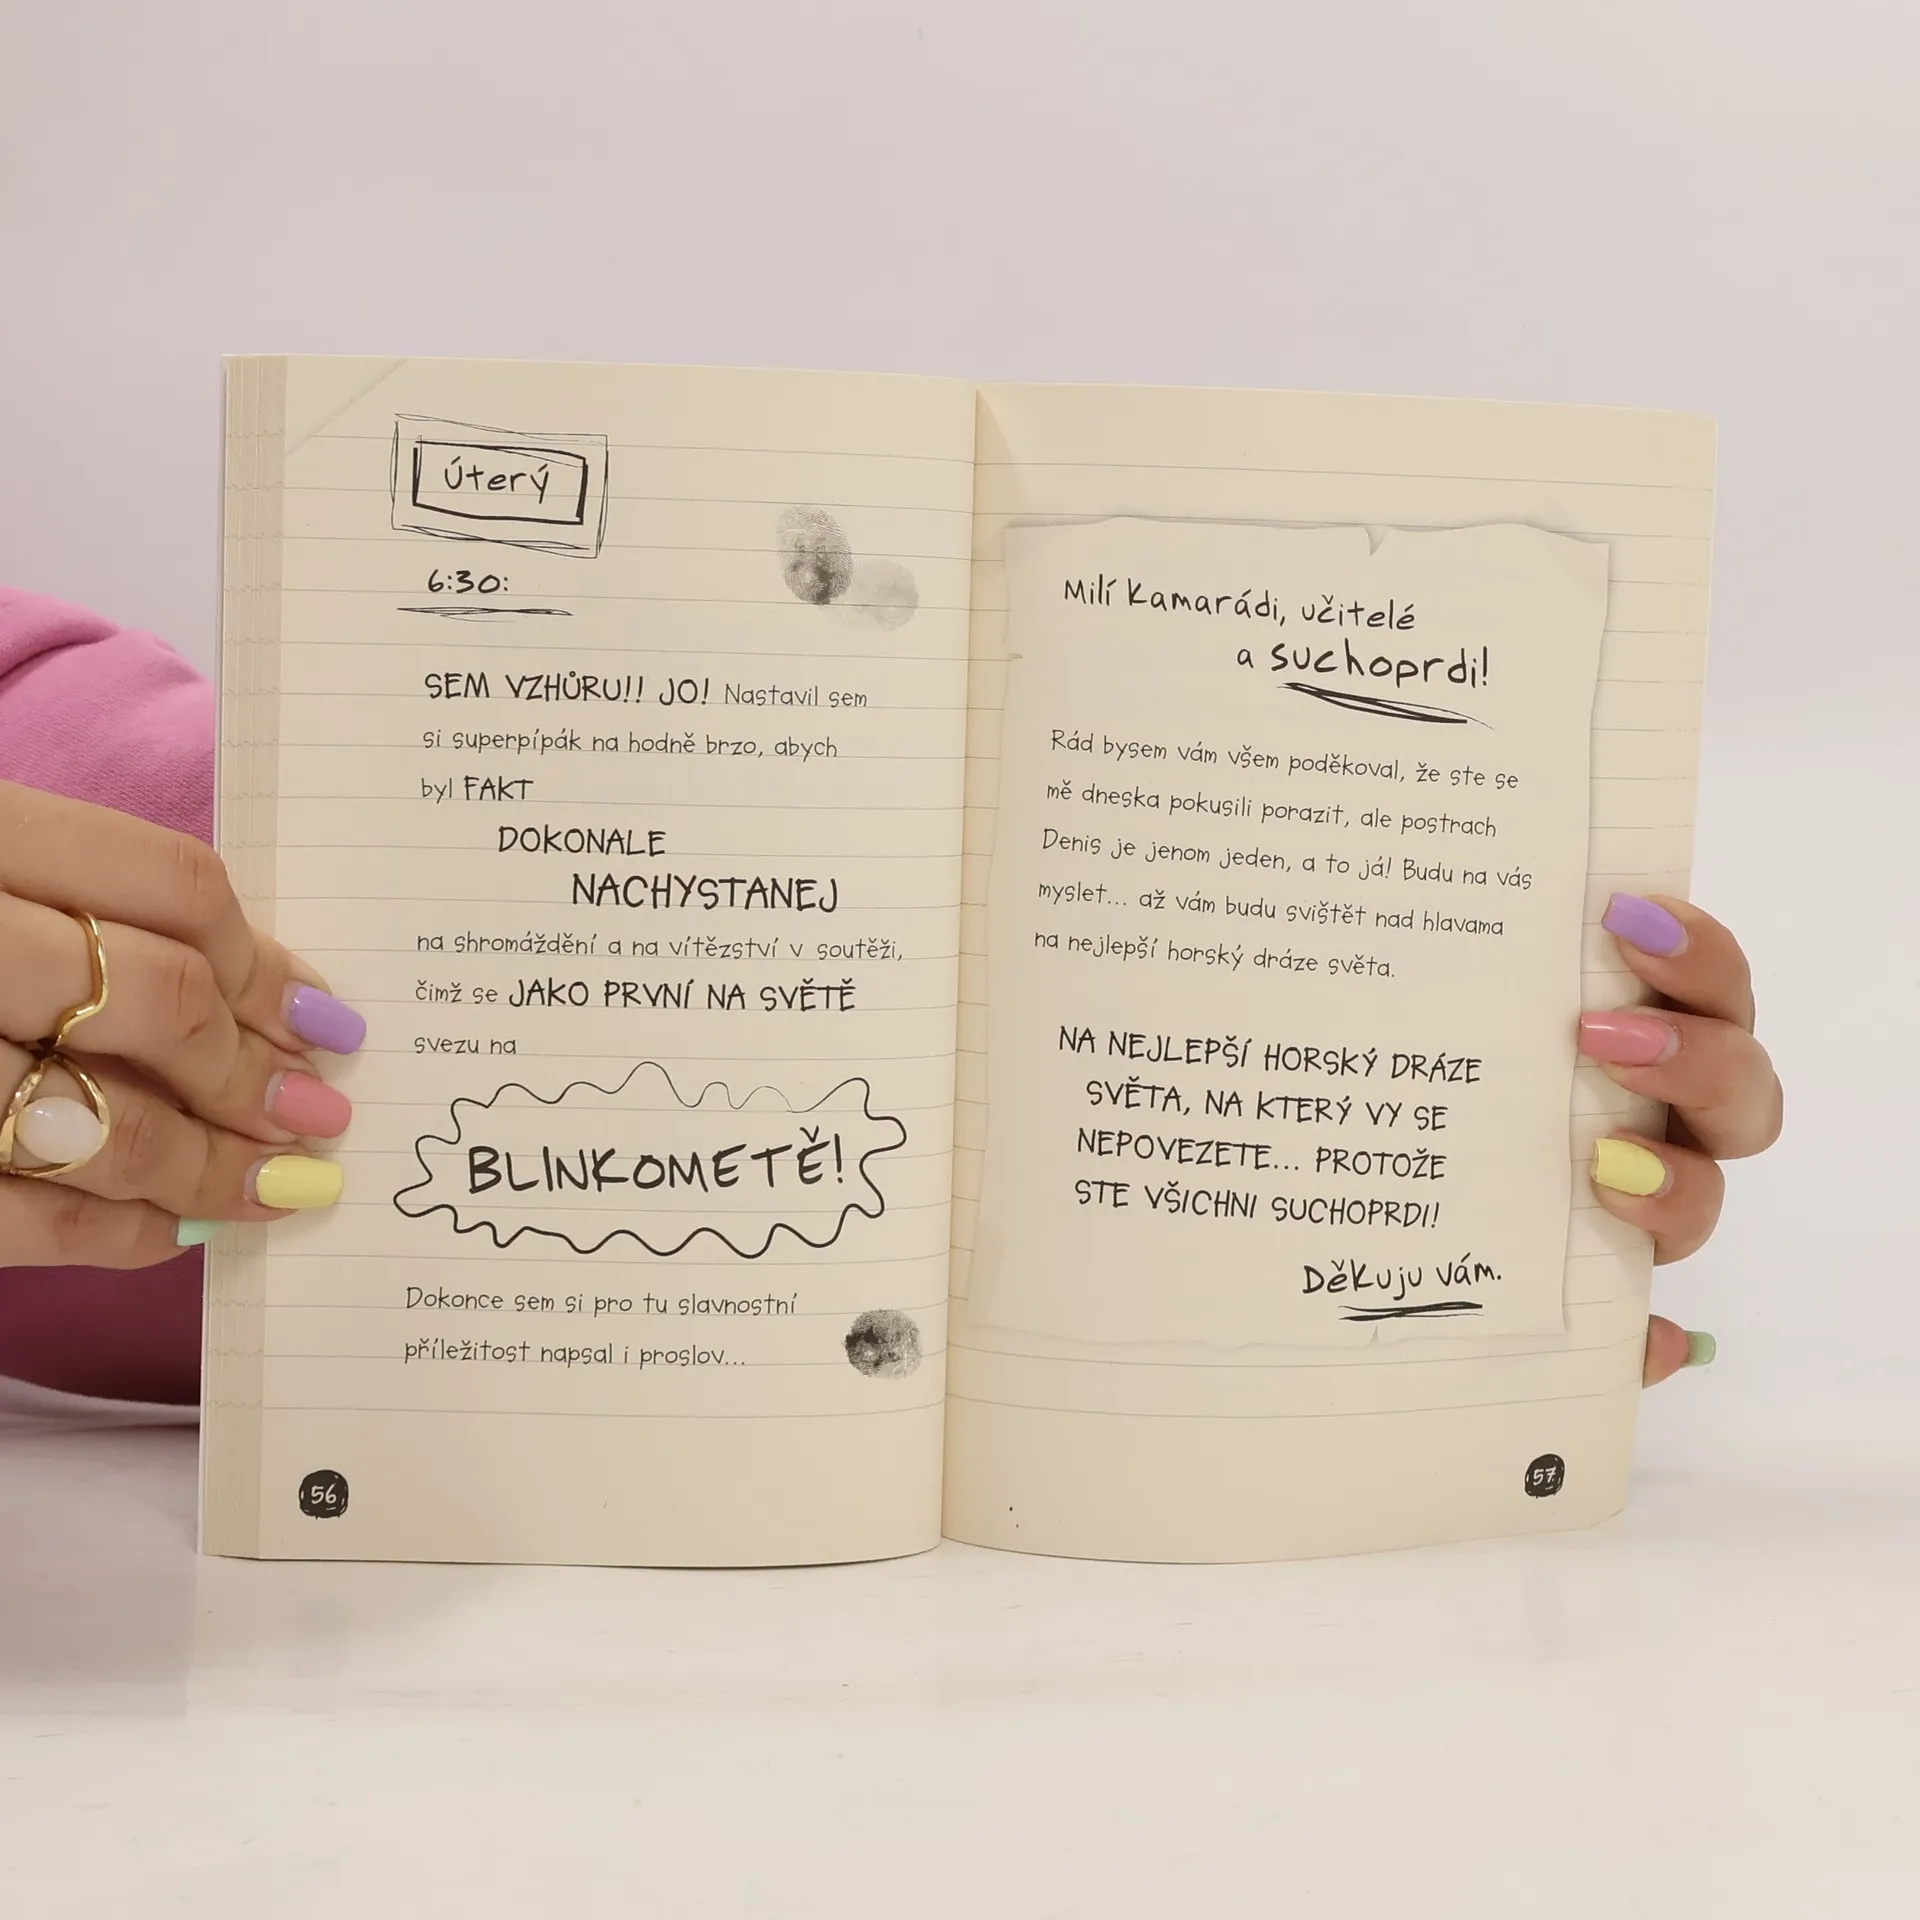 Úterý
6:30:
SEM VZHŮRU!! JO! Nastavil sem
si superpípák na hodně brzo, abych
byl FAKT
DOKONALE
NACHYSTANEJ
na shromáždění a na vítězství v soutěži,
čimž se JAKO PRVNÍ NA SVĚTĚ
svezu na
BLINKOMETĚ!
Dokonce sem si pro tu slavnostní
příležitost napsal i proslov...
56
Milí kamarádi, učitelé
a suchoprdi!
Rád bysem vám všem poděkoval, že ste se
mě dneska pokusili porazit, ale postrach
Denis je jenom jeden, a to já! Budu na vás
myslet... až vám budu svištět nad hlavama
na nejlepší horský dráze světa.
NA NEJLEPŠÍ HORSKÝ DRÁZE
SVĚTA, NA KTERÝ VY SE
NEPOVEZETE... PROTOŽE
STE VŠICHNI SUCHOPRDI!
Děkuju vám.
57